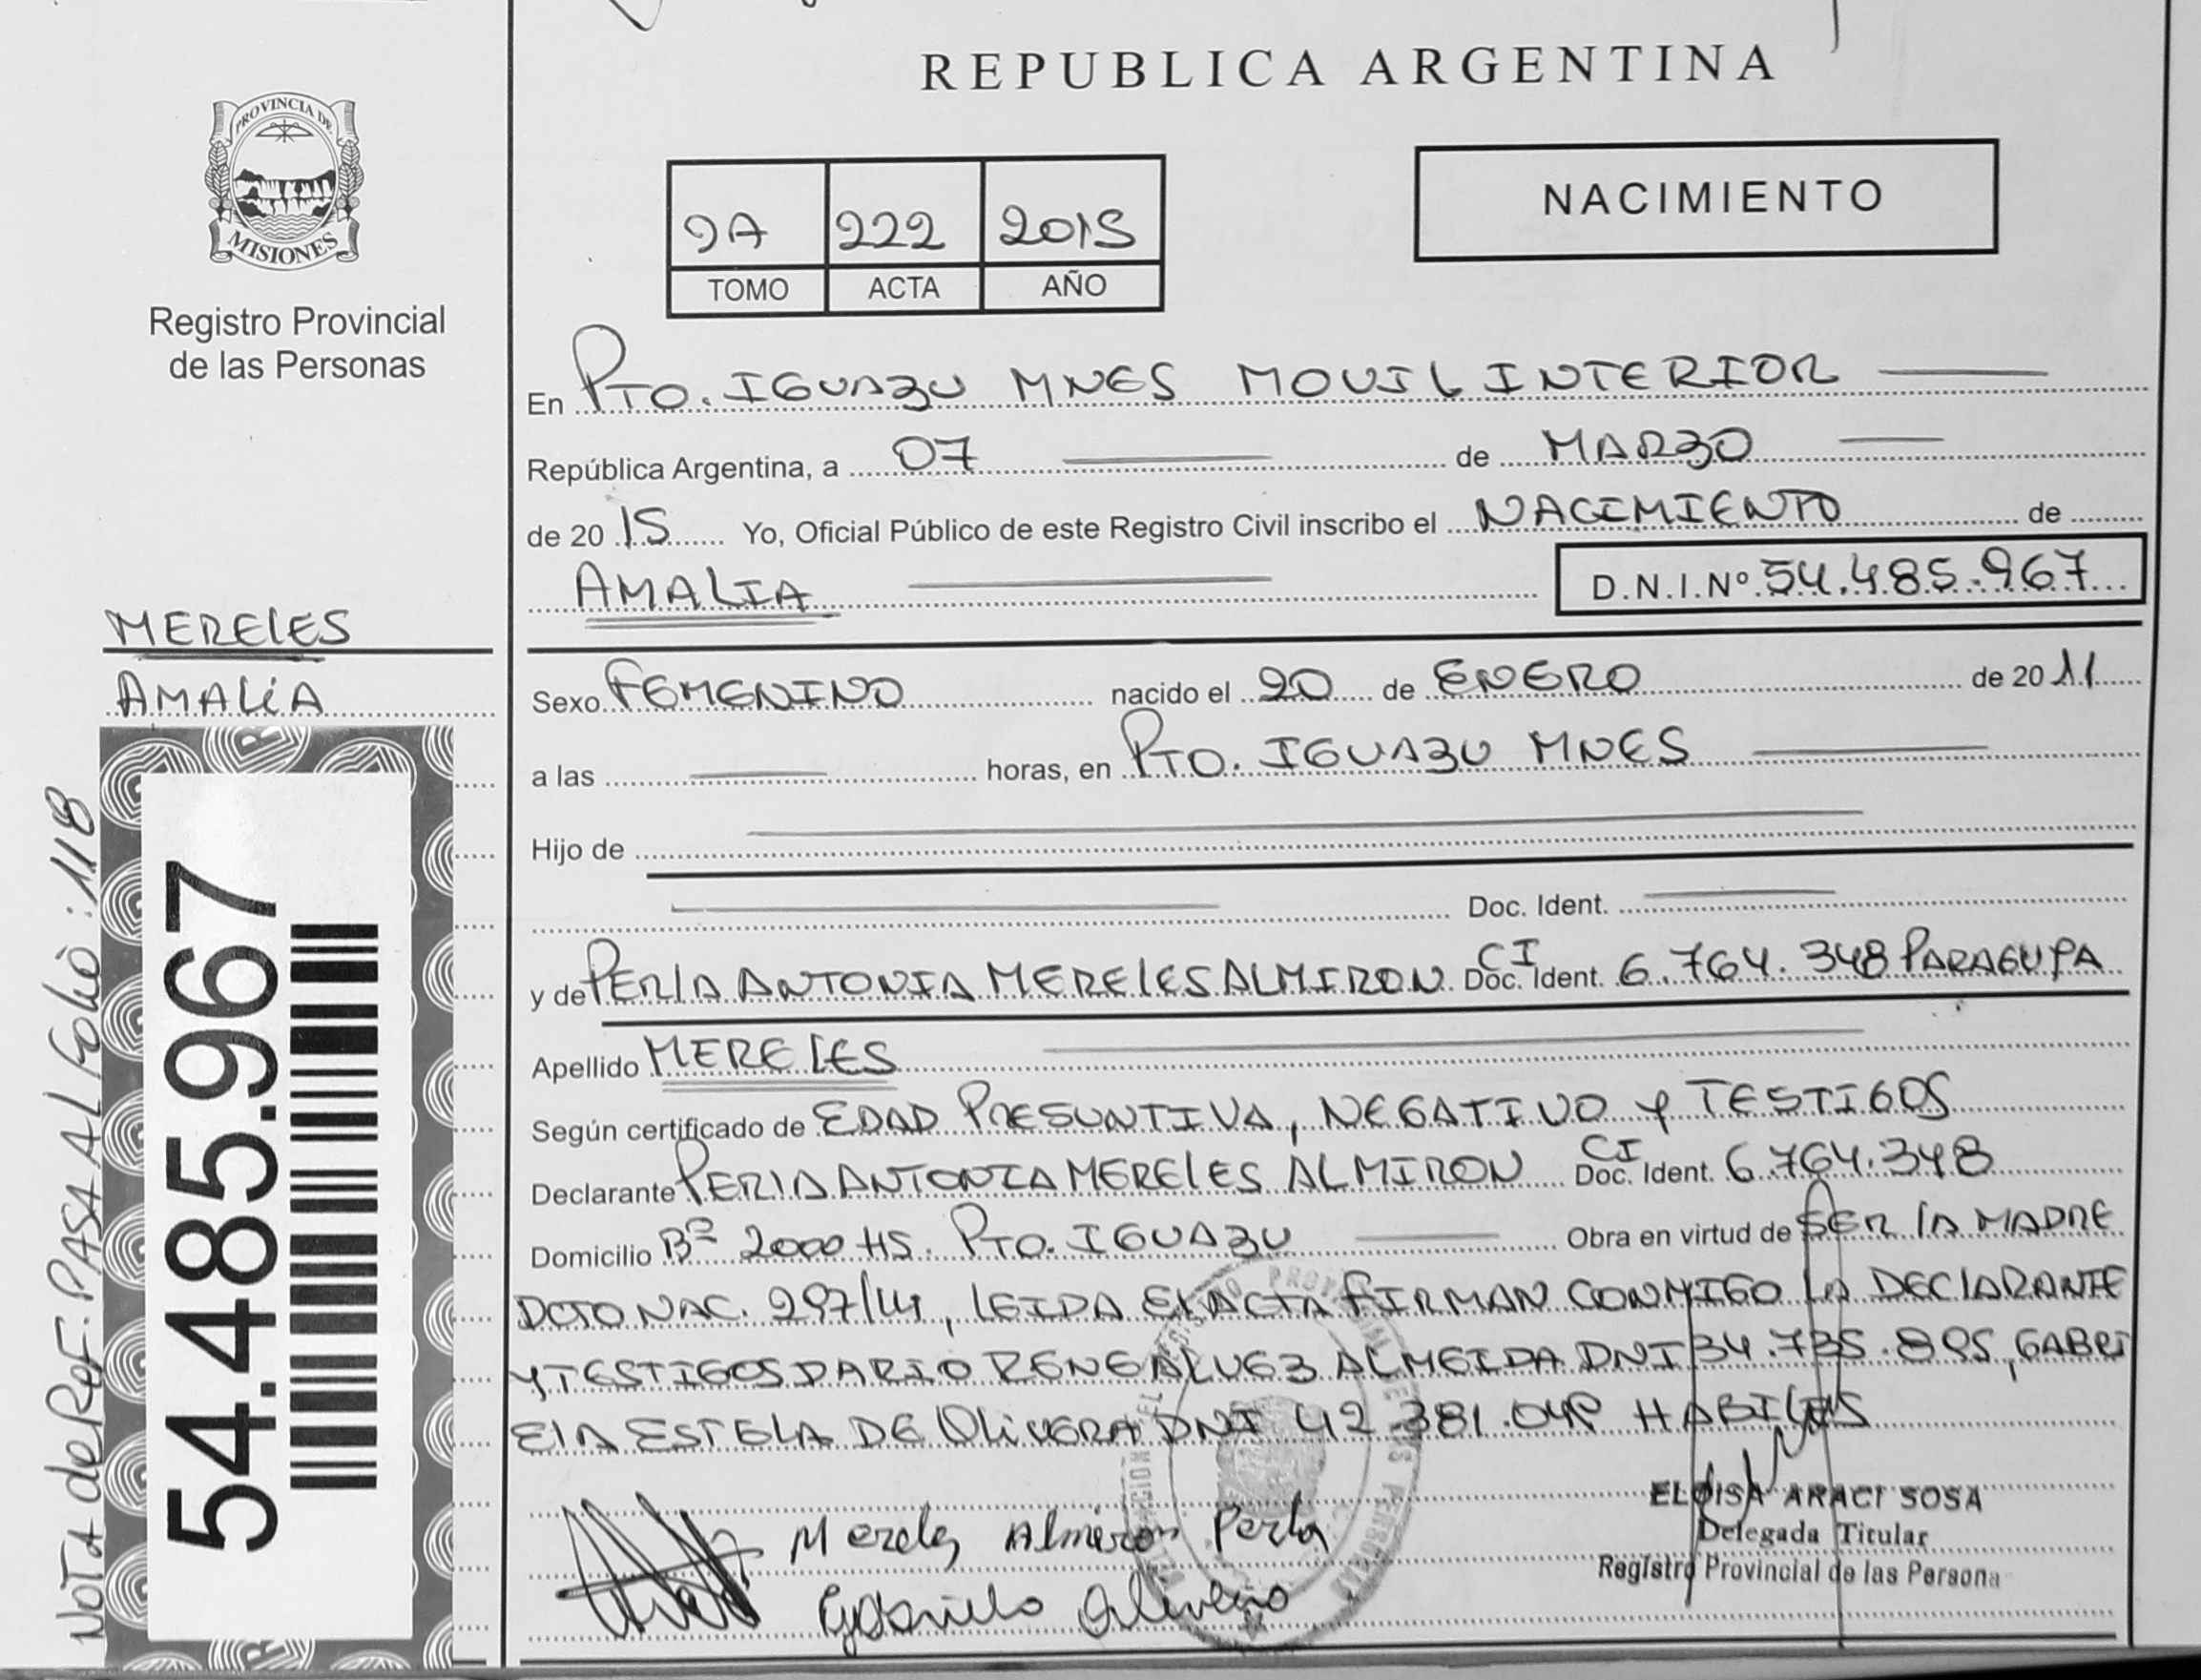 REPUBLICA ARGENTINA
PROVINCIA DE
MISIONES
Registro Provincial
de las Personas
NACIMIENTO
2A 222 2015
TOMO ACTA AÑO
En PTO. IGUAZU MNES MOVIL INTERIOR
República Argentina, a 07 de MARZO
de 2015 Yo, Oficial Público de este Registro Civil inscribo el NACIMIENTO de
AMALIA D.N.I.Nº 54.485.967
MERELES
AMALIA
Sexo FEMENINO nacido el 20 de ENERO de 2011
a las horas, en PTO. IGUAZU MNES
Hijo de
Doc. Ident.
y de PERLA ANTONIA MERELES ALMIRON CI Doc. Ident. 6.764.348 PARAGUPA
Apellido MERELES
Según certificado de EDAD PRESUNTIVA, NEGATIVO Y TESTIGOS
Declarante PERLA ANTONIA MERELES ALMIRON CI Doc. Ident. 6.764.348
Domicilio Bº 2000 HS. PTO. IGUAZU Obra en virtud de SER LA MADRE
DCTO NAC. 297/14, LEIDA EL ACTA FIRMAN CONMIGO LA DECLARANTE
Y TESTIGOS DARIO RENE ALVEZ ALMEIDA DNI 34.735.895, GABRI
ELA ESTELA DE OLIVERA DNI 42.381.049 HABILES
NOTA de REF. PASA AL Folio: 118
54.485.967
Mereles Almiron Perla
ELOISA ARACI SOSA
Delegada Titular
Registro Provincial de las Persona